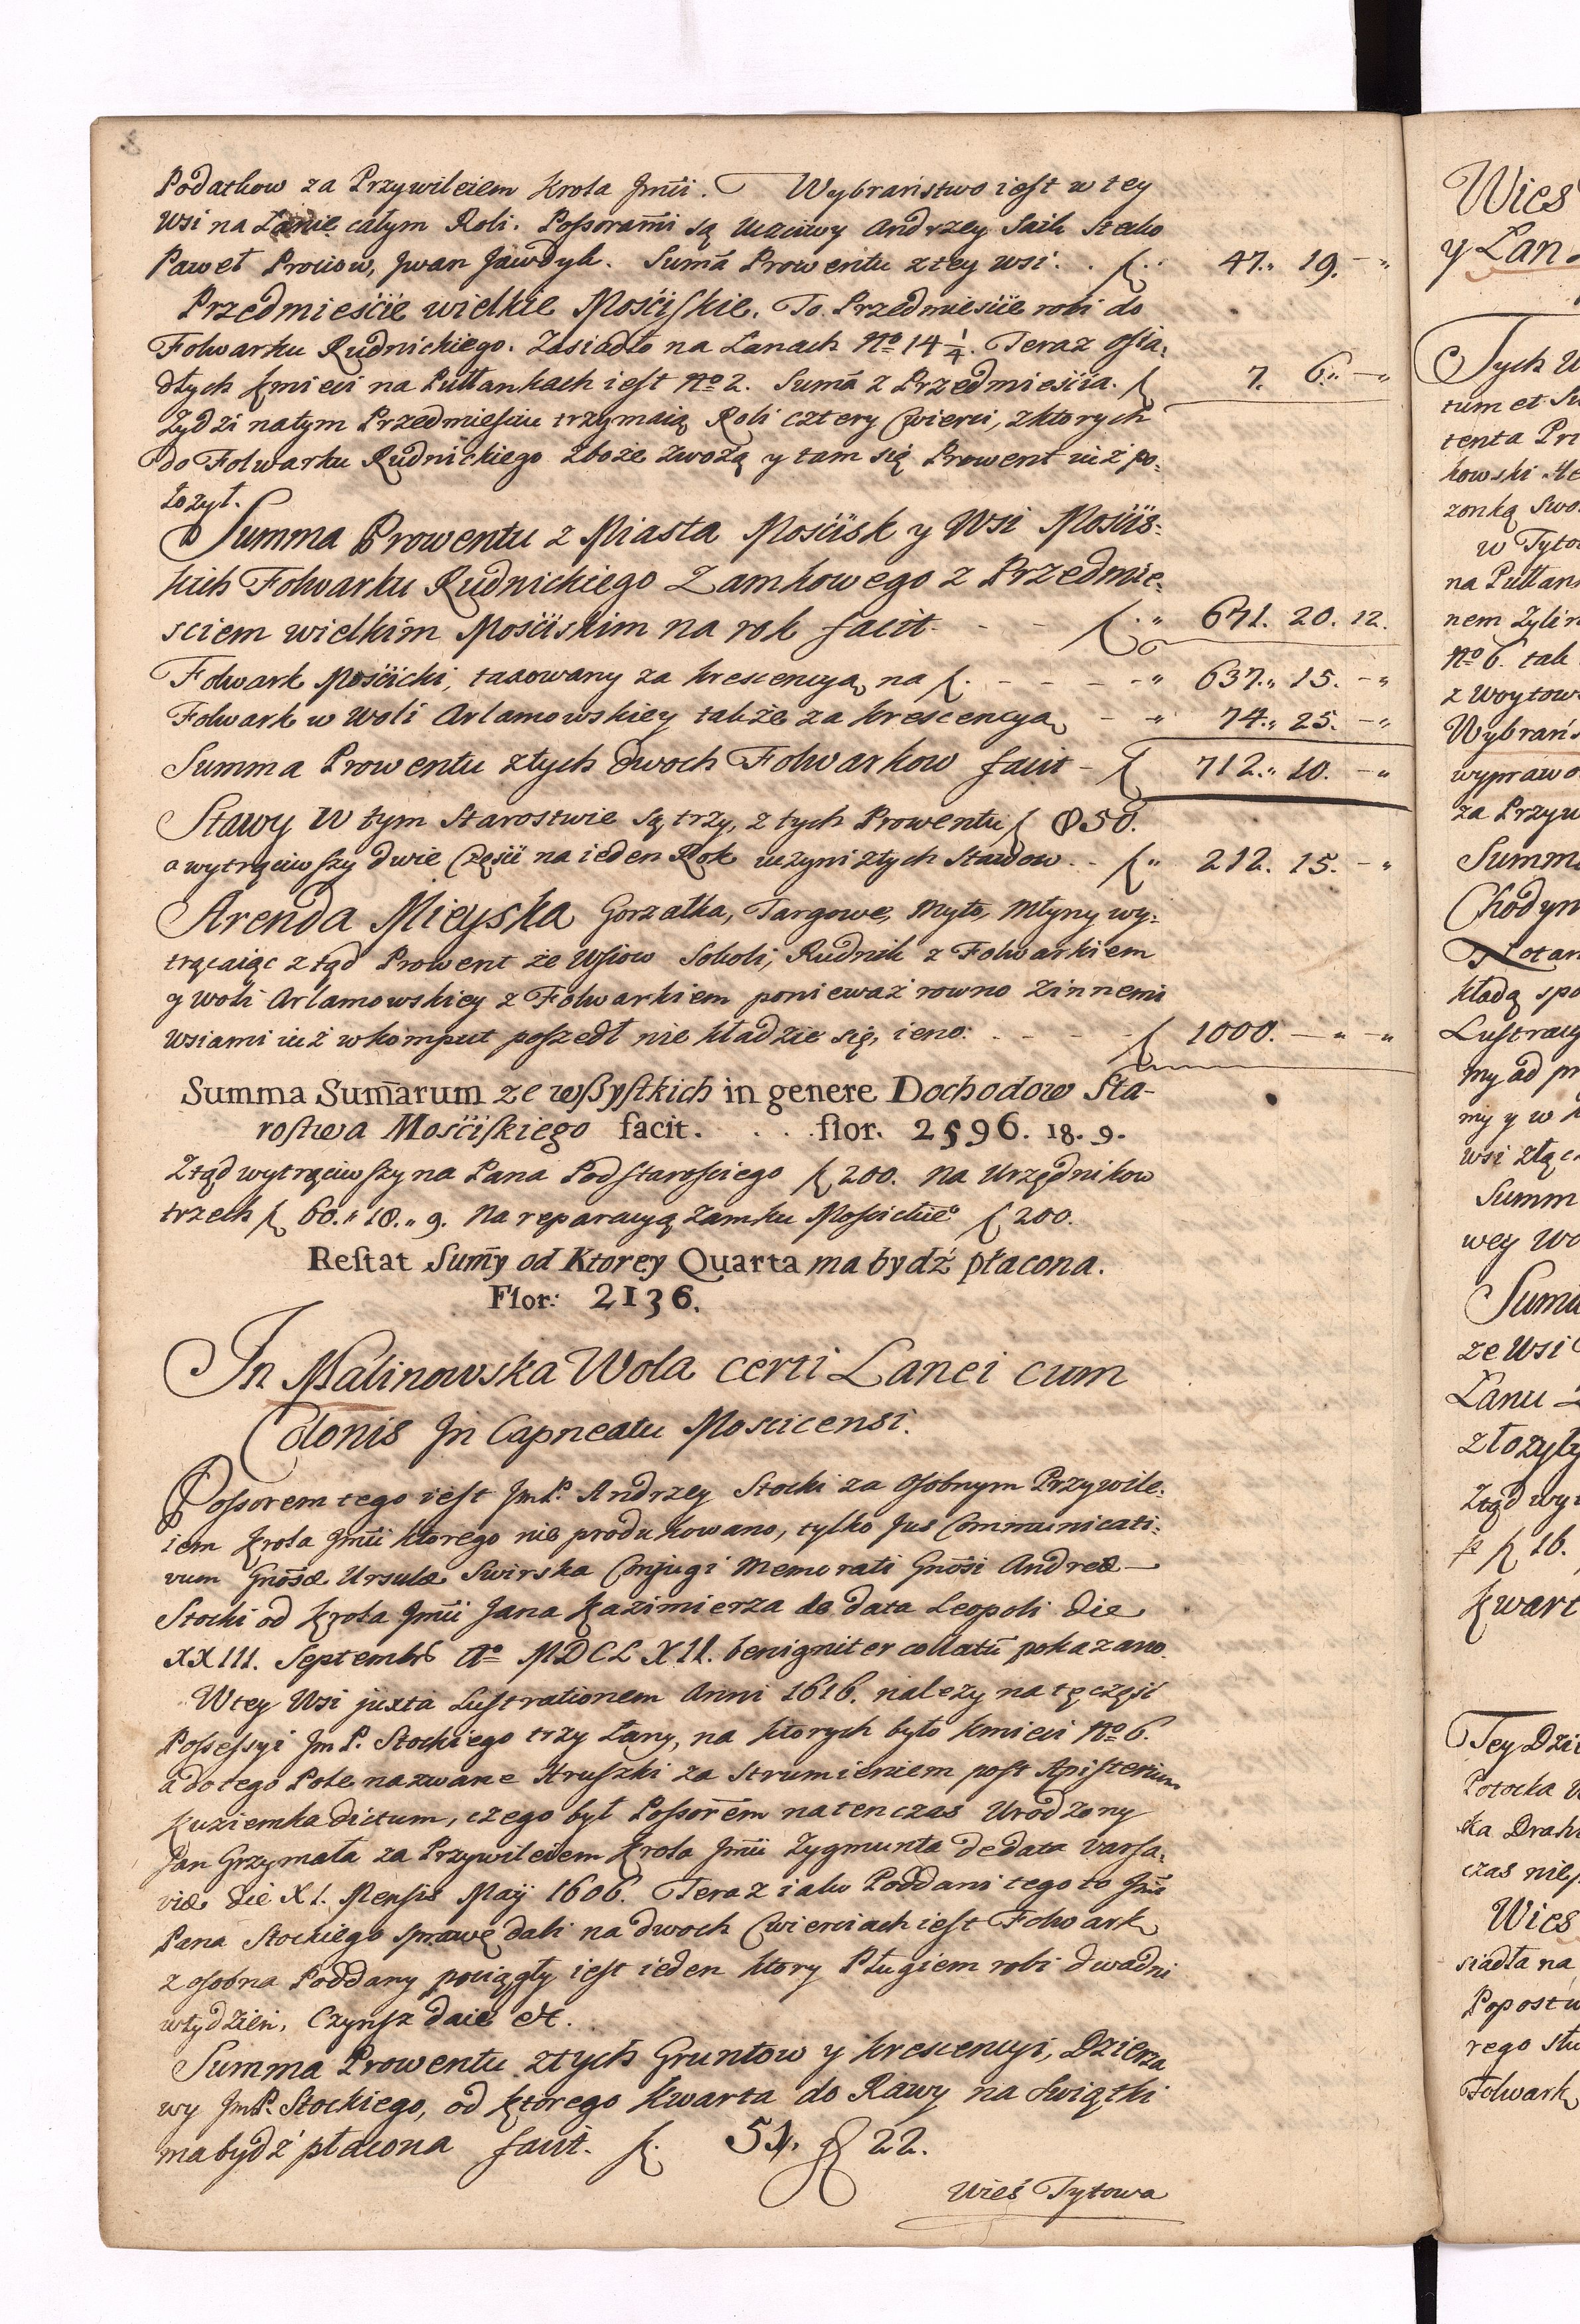 Podatkow za Przywileiem Krola Jmći. Wybraństwo iest w tey
Wsi na Łanie całym Roli. Possorami są Uczciwy Andrzey Saik Stecko
Paweł Prociow, Jwan Jawdyk. Suma Prowentu z tey wsi. . f. 47. 19. -
Przedmieście wielkie Mościskie. To Przedmieście robi do
Folwarku Rudnickiego. Zasiadło na Łanach No 14 1/4. Teraz osia:
dłych Kmieci na Pułłankach iest No 2. Suma z Przedmieścia. f 7. 6. -
Żydzi na tym Przedmieściu trzymaią Roli cztery Cwierci, z ktorych
do Folwarku Rudnickiego zboże zwożą y tam się Prowent iuż po:
łożył.
Summa Prowentu z Miasta Mościsk y Wsi Mościs:
kich Folwarku Rudnickiego Zamkowego z Przedmie:
sciem wielkim Mościskim na rok facit - - - f. 671. 20. 12.
Folwark Mościcki, taxowany za krescencyą na f. - - - - 637. 15. -
Folwark w Woli Arlamowskiey także za krescencyą - 74. 25. -
Summa Prowentu z tych dwoch Folwarkow facit - f 712. 10. -
Stawy W tym Starostwie są trzy, z tych Prowentu f 850.
a wytrąciwszy dwie Części na ieden Rok uczyni z tych Stawow - f 212. 15. -
Arenda Mieyska Gorzałka, Targowe, Myto, Młyny wy:
trącaiąc ztąd Prowent ze Wsiow Sokoli, Rudnik z Folwarkiem
y Woli Arlamowskiey z Folwarkiem ponieważ rowno z innemi
Wsiami iuż w komput poszedł nie kładzie się, ieno. - - - f 1000. - -
Summa Sumarum ze wszystkich in genere Dochodow Sta-
rostwa Mościskiego facit. . . . flor. 2596. 18. 9.
Ztąd wytrąciwszy na Pana Podstarosciego f 200. Na Urzędnikow
trzech f 60. 18. 9. Na reparacyą Zamku Moscickie° f 200.
Restat Sumy od Ktorey Quarta ma bydź płacona.
Flor: 2136.
In Malinowska Wola certi Lanei cum
Colonis Jn Capneatu Moscicensi.
Possorem tego iest JmP. Andrzey Stocki za osobnym Przywile:
iem Krola Jmći ktorego nie produkowano, tylko Jus Communicati:
vum Gnosæ Ursulæ Swirska Conjugi Memorati Gnosi Andreæ -
Stocki od Krola Jmći Jana Kazimierza de data Leopoli die
XXIII. Septembr Ao MDCLXII. benigniter collatū pokazano.
W tey Wsi juxta Lustrationem Anni 1616. należy na tę część
Possessyi Jm P. Stockiego trzy Łany, na ktorych było Kmieci No 6.
a do tego Pole nazwane Hruszki za Strumieniem post Apisterium
Kuziemka dictum, czego był Possorem na ten czas Urodzony
Jan Grzymała za Przywileiem Krola Jmći Zygmunta de data Varsa:
viæ die XI. Mensis Maÿ 1606. Teraz iako Poddani tego to Jmć
Pana Stockiego sprawę dali na dwoch Cwierciach iest Folwark
z osobna Poddany pociągły iest ieden ktory Pługiem robi dwa dni
w tydzień, Czynsz daie etc.
Summa Prowentu z tych Gruntow y krescencyi, Dzierza
wy JmP. Stockiego, od ktorego Kwarta do Rawy na Swiątki
ma bydź płacona facit. f. 51. g 22.
Wieś Tytowa
Wies
y Lan
Tych
tum et
tenta
kowski
zonką
w
na
nem
No 6. tak
z woytow
Wybrańs
wyprawo
za Przyw
Summa
Chodyn
kładą spo
Lustracy
my ad pr
my y w
wsi
Summ
wey Wo
Suma
ze Wsi
Łanu
złożyły
Ztąd wyt
f 16.
Kwart
Tey Dzi
Potocka
ka Drah
czas
Wies
siadła na
rego
Folwark